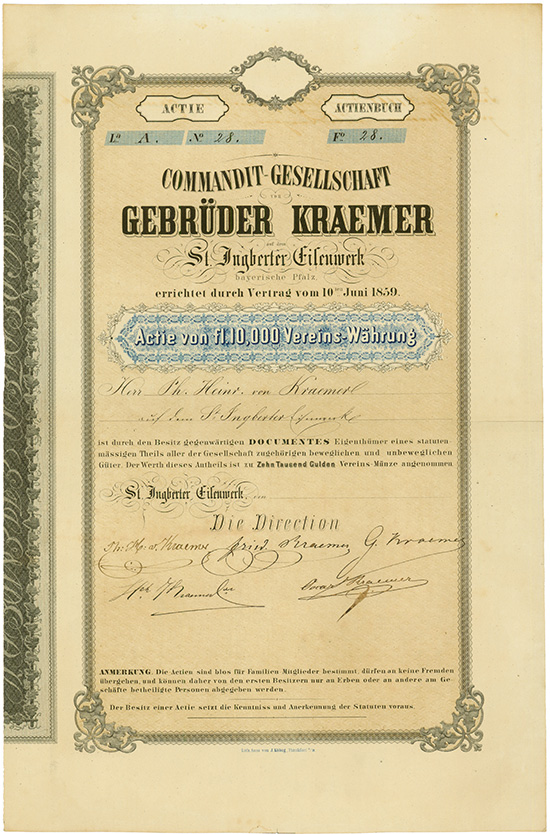 ACTIE
ACTIENBUCH
La A. No 28.
Fo 28.
COMMANDIT-GESELLSCHAFT
VON
GEBRÜDER KRAEMER
auf dem
St. Ingberter Eisenwerk
bayerische Pfalz,
errichtet durch Vertrag vom 10ten Juni 1859.
Actie von fl. 10,000 Vereins-Währung
Herr Ph. Heinr. von Kraemer
auf dem St. Ingberter Eisenwerk
ist durch den Besitz gegenwärtigen DOCUMENTES Eigenthümer eines statuten-
mässigen Theils aller der Gesellschaft zugehörigen beweglichen und unbeweglichen
Güter. Der Werth dieses Antheils ist zu Zehn Tausend Gulden Vereins-Münze angenommen
St. Ingberter Eisenwerk, den
Die Direction
Ph. H. v. Kraemer Fried. Kraemer G. Kraemer
Kraemer Oscar Kraemer
ANMERKUNG. Die Actien sind blos für Familien Mitglieder bestimmt, dürfen an keine Fremden
übergehen, und können daher von den ersten Besitzern nur an Erben oder an andere am Ge-
schäfte betheiligte Personen abgegeben werden.
Der Besitz einer Actie setzt die Kenntniss und Anerkennung der Statuten voraus.